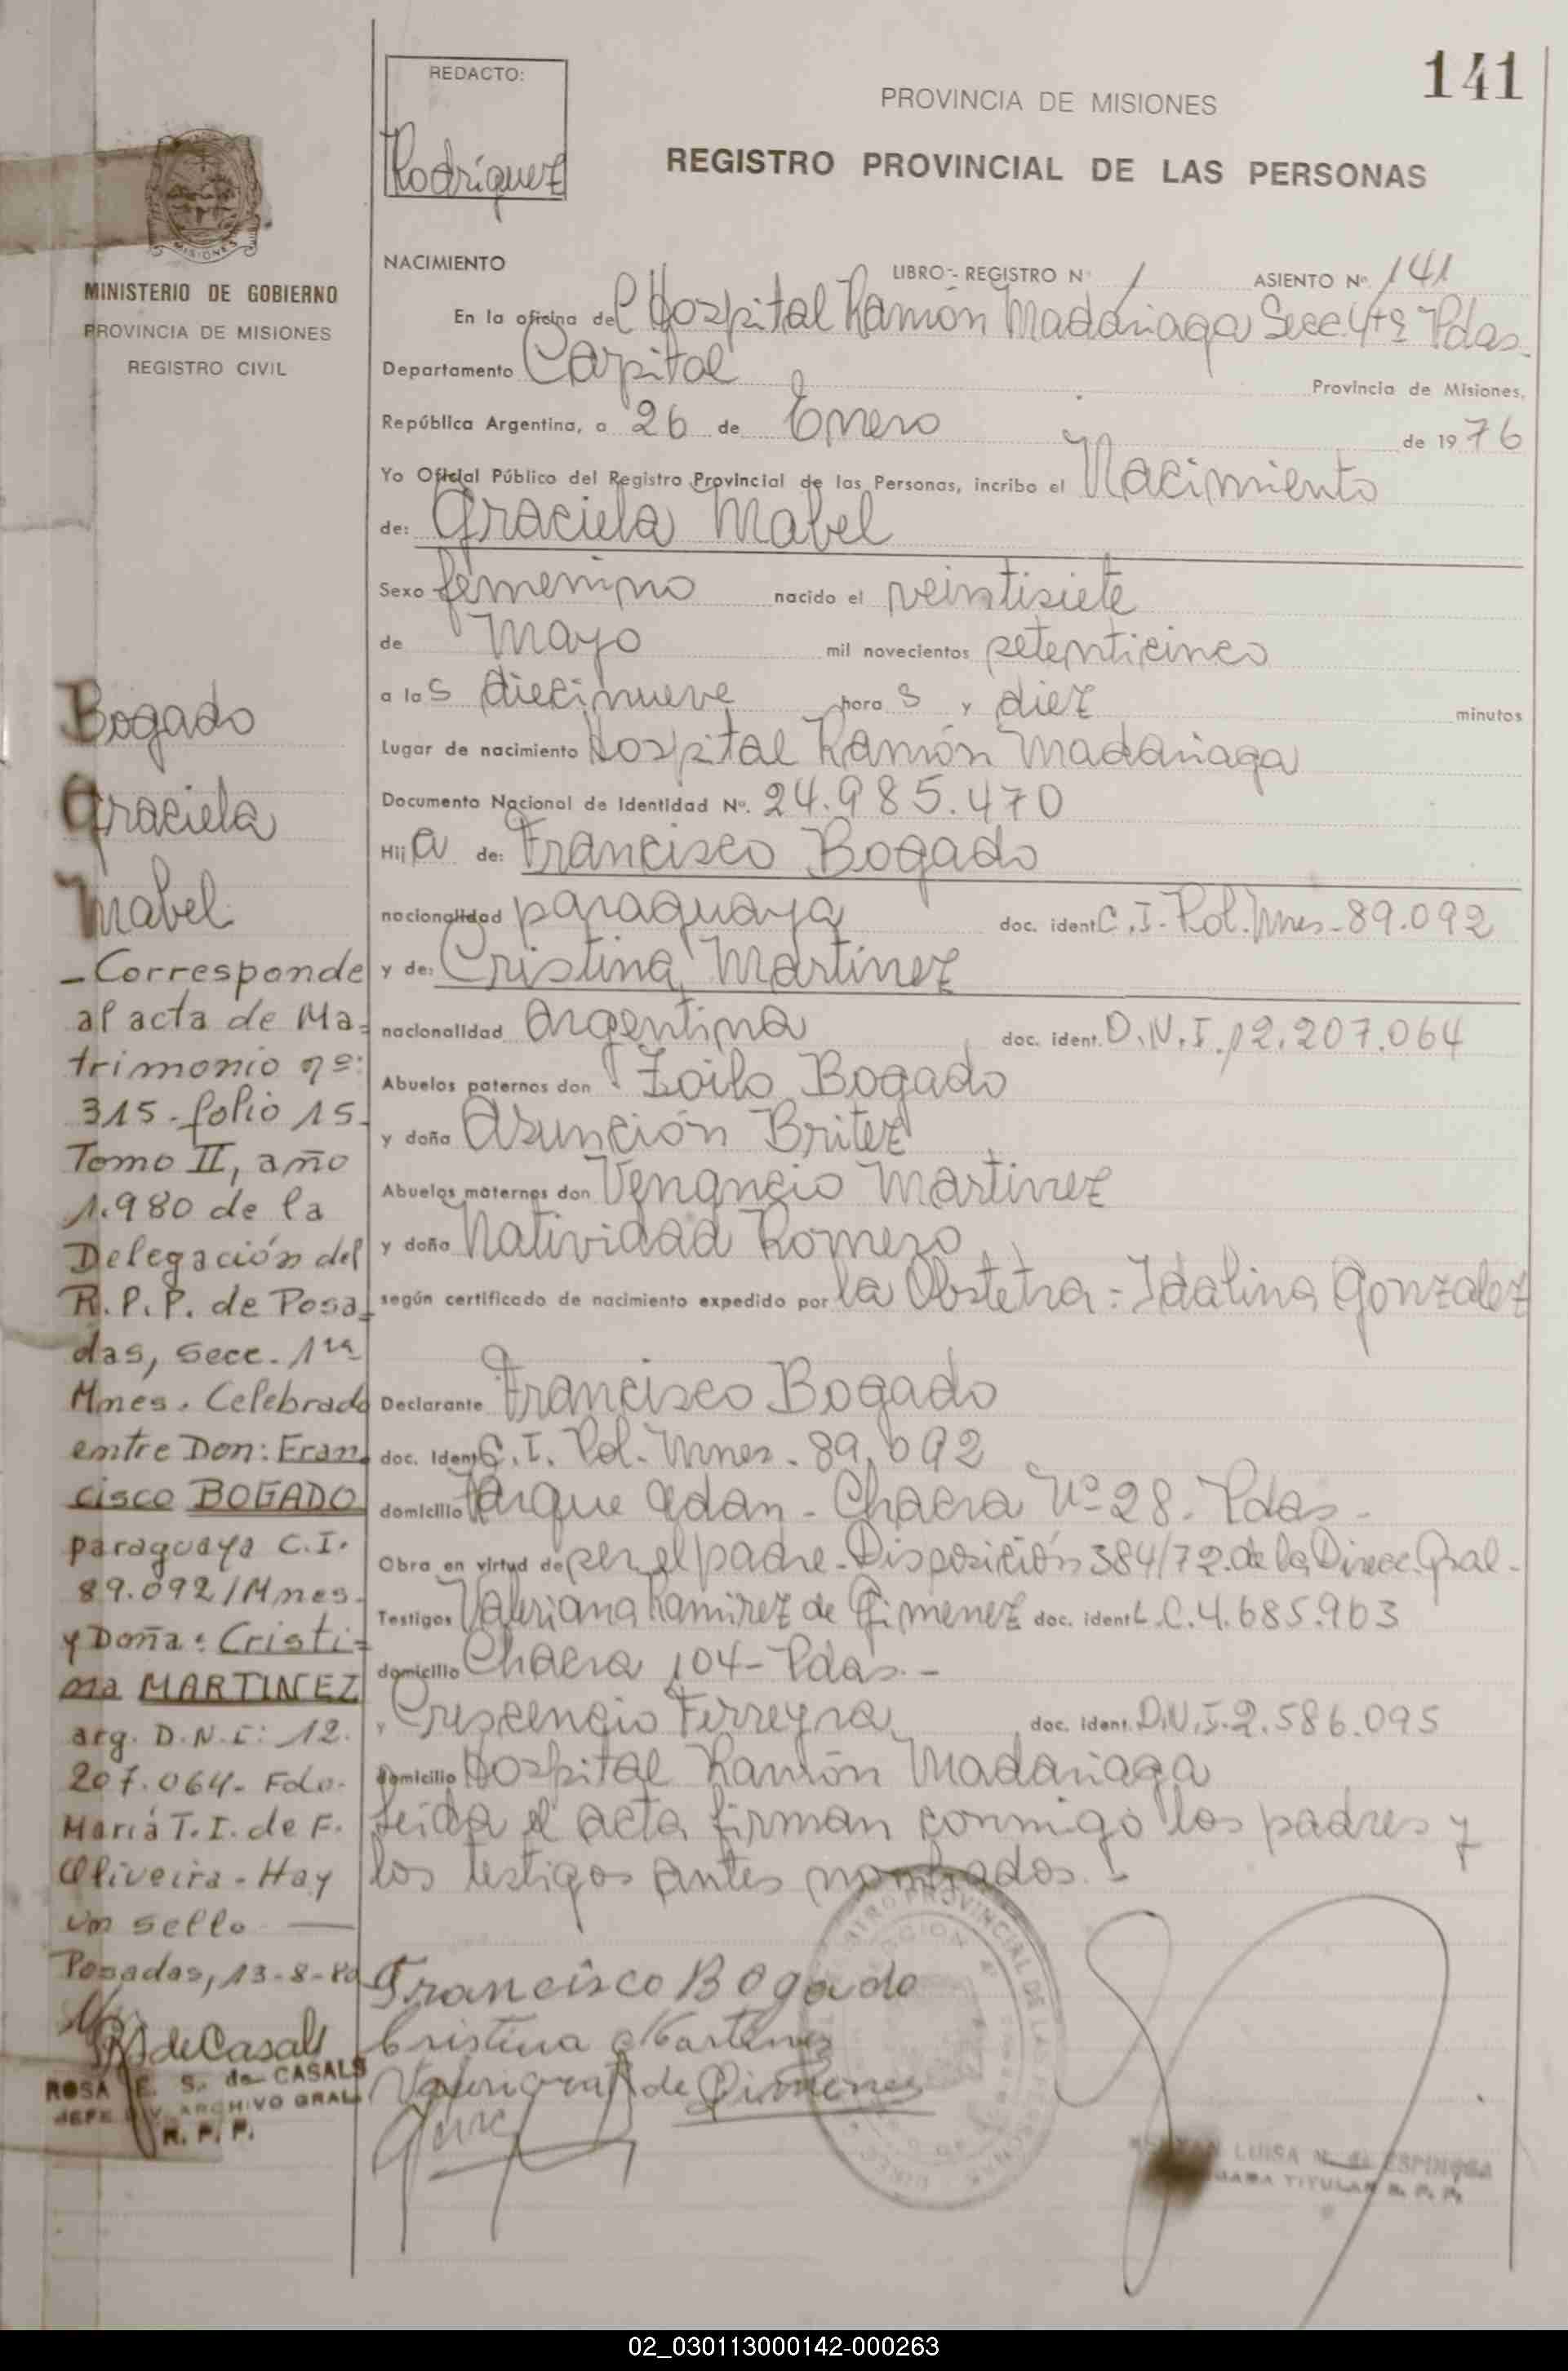 141
REDACTO:
Rodríguez
PROVINCIA DE MISIONES
REGISTRO PROVINCIAL DE LAS PERSONAS
MISIONES
MINISTERIO DE GOBIERNO
PROVINCIA DE MISIONES
REGISTRO CIVIL
NACIMIENTO LIBRO - REGISTRO Nº 1 ASIENTO Nº 141
En la oficina del Hospital Ramón Madariaga Secc. 4ta Pdas.
Departamento Capital Provincia de Misiones,
República Argentina, a 26 de Enero de 1976
Yo Oficial Público del Registro Provincial de las Personas, incribo el Nacimiento
de: Graciela Mabel
Sexo femenino nacido el veintisiete
de Mayo mil novecientos setenticinco
a las diecinueve horas y diez minutos
Lugar de nacimiento Hospital Ramón Madariaga
Documento Nacional de Identidad Nº. 24.985.470
Hija de: Francisco Bogado
nacionalidad paraguaya doc. ident. C.I. Pol. Mnes - 89.092
y de: Cristina Martínez
nacionalidad Argentina doc. ident. D.N.I. 12.207.064
Abuelos paternos don Zoilo Bogado
y doña Asunción Britez
Abuelos maternos don Venancio Martinez
y doña Natividad Romero
según certificado de nacimiento expedido por la Obstetra - Idalina Gonzalez
Declarante Francisco Bogado
doc. Ident. C.I. Pol. Mnes - 89.092
domicilio Parque Adan - Chacra Nº 28. Pdas -
Obra en virtud de ser el padre - Disposición 384/72 de la Direcc. Gral -
Testigos Valeriana Ramirez de Gimenez doc. ident. L.C. 4.685.963
domicilio Chacra 104 - Pdas. -
y Crescencio Ferreyra doc. ident. D.N.I. 2.586.095
domicilio Hospital Ramón Madariaga
Leída el acta firman conmigo los padres y
los testigos antes nombrados. -
Francisco Bogado
Cristina Martinez
de Gimenez
LUISA ESPINOSA
TITULAR R. P. P.
Bogado
Graciela
Mabel
- Corresponde
al acta de Ma-
trimonio nº:
315 - folio 15
Tomo II, año
1.980 de la
Delegación del
R.P.P. de Posa-
das, Secc. 1ra
Mnes. Celebrado
entre Don: Fran-
cisco BOGADO
paraguaya C.I.
89.092/Mnes -
y Doña: Cristi-
na MARTINEZ
arg. D.N.I: 12.
207.064 - Fdo.
María T. I. de F.
Oliveira - Hay
un sello
Posadas, 13-8-80
de Casals
ROSA E. S. de CASALS
JEFE DIV. ARCHIVO GRAL
R. P. P.
02_030113000142-000263